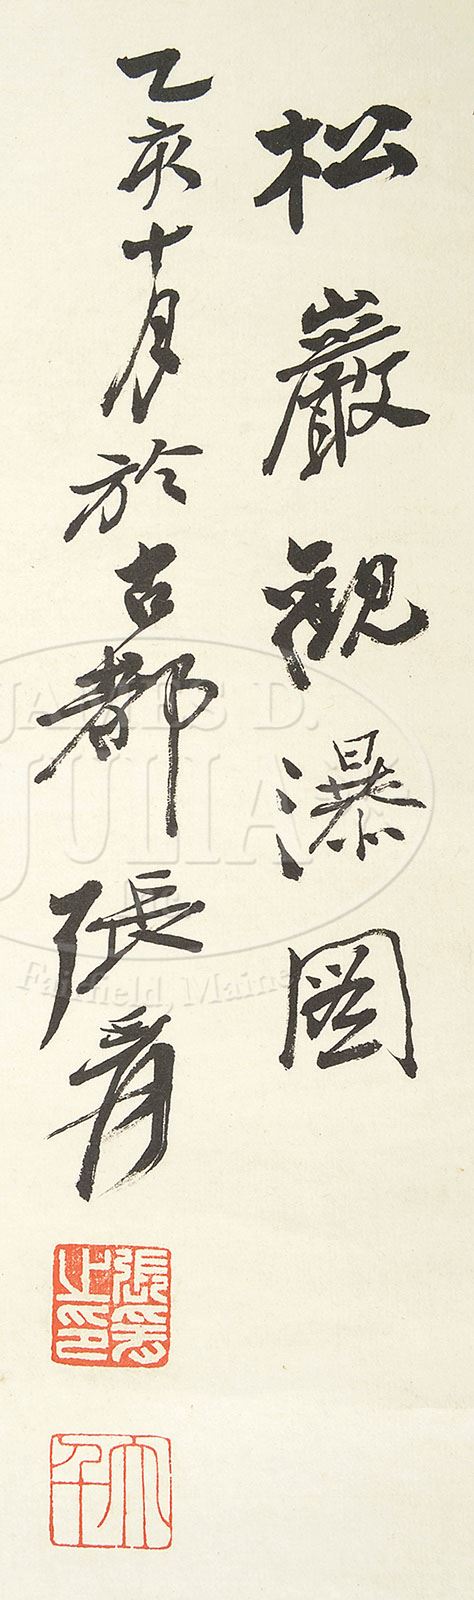 松巖觀瀑圖
乙亥十月於古都張爰
張爰之印
大千
JAMES D.
JULIA
Fairfield, Maine